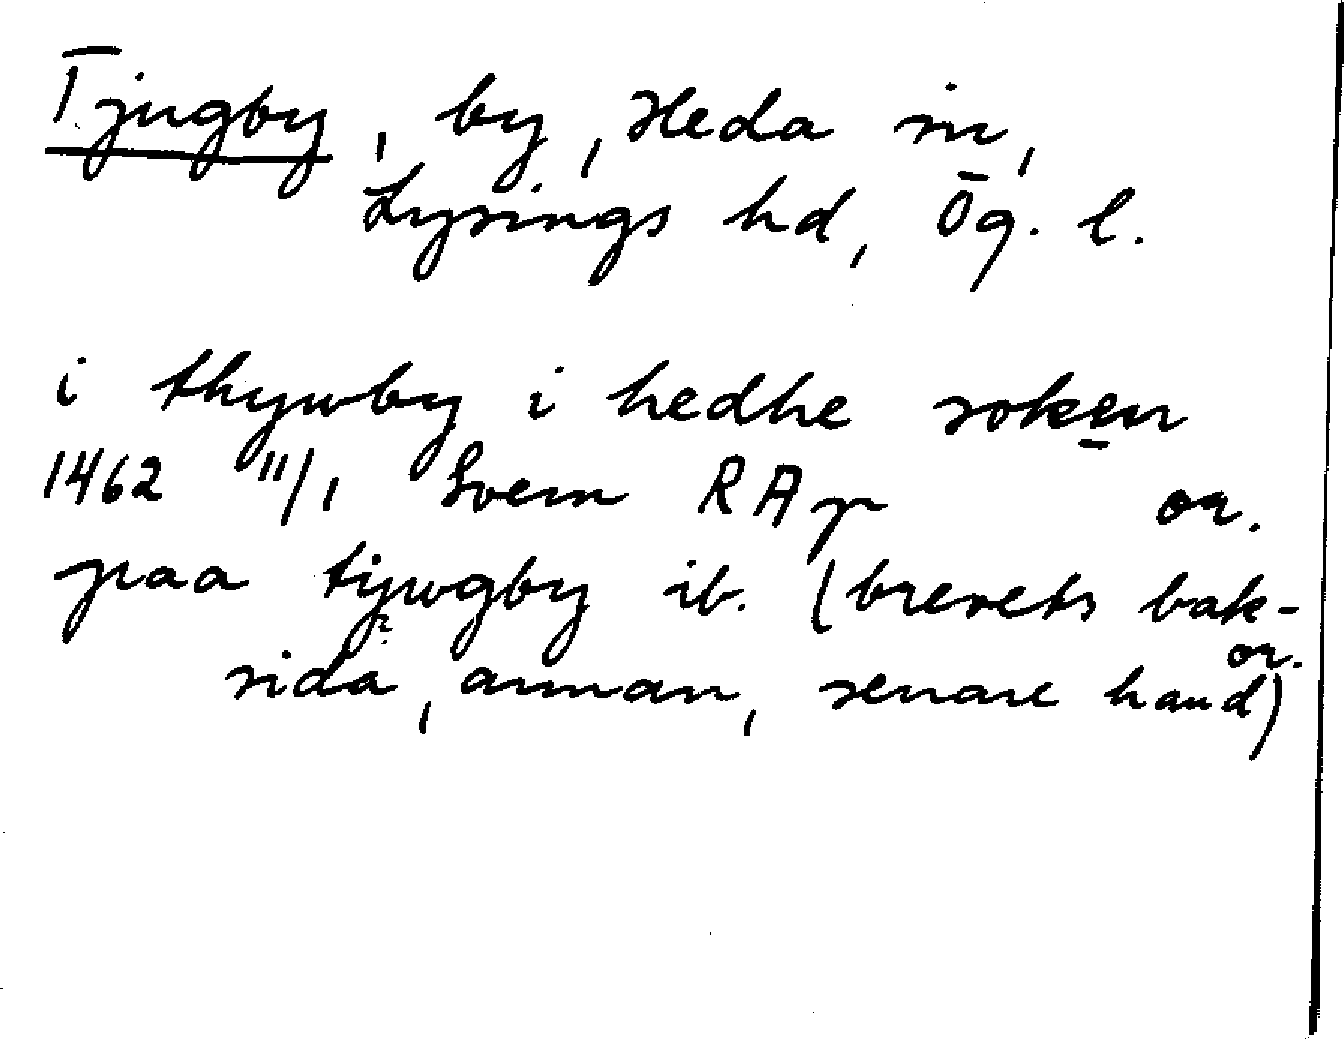 Tjugby, by, Heda sn,
Lysings hd, Ög. l.
i thywby i hedhe soken
1462 11/1 Svem RAp or.
paa tijwgby ib. (brevets bak-
sida, annan, senare hand) or.